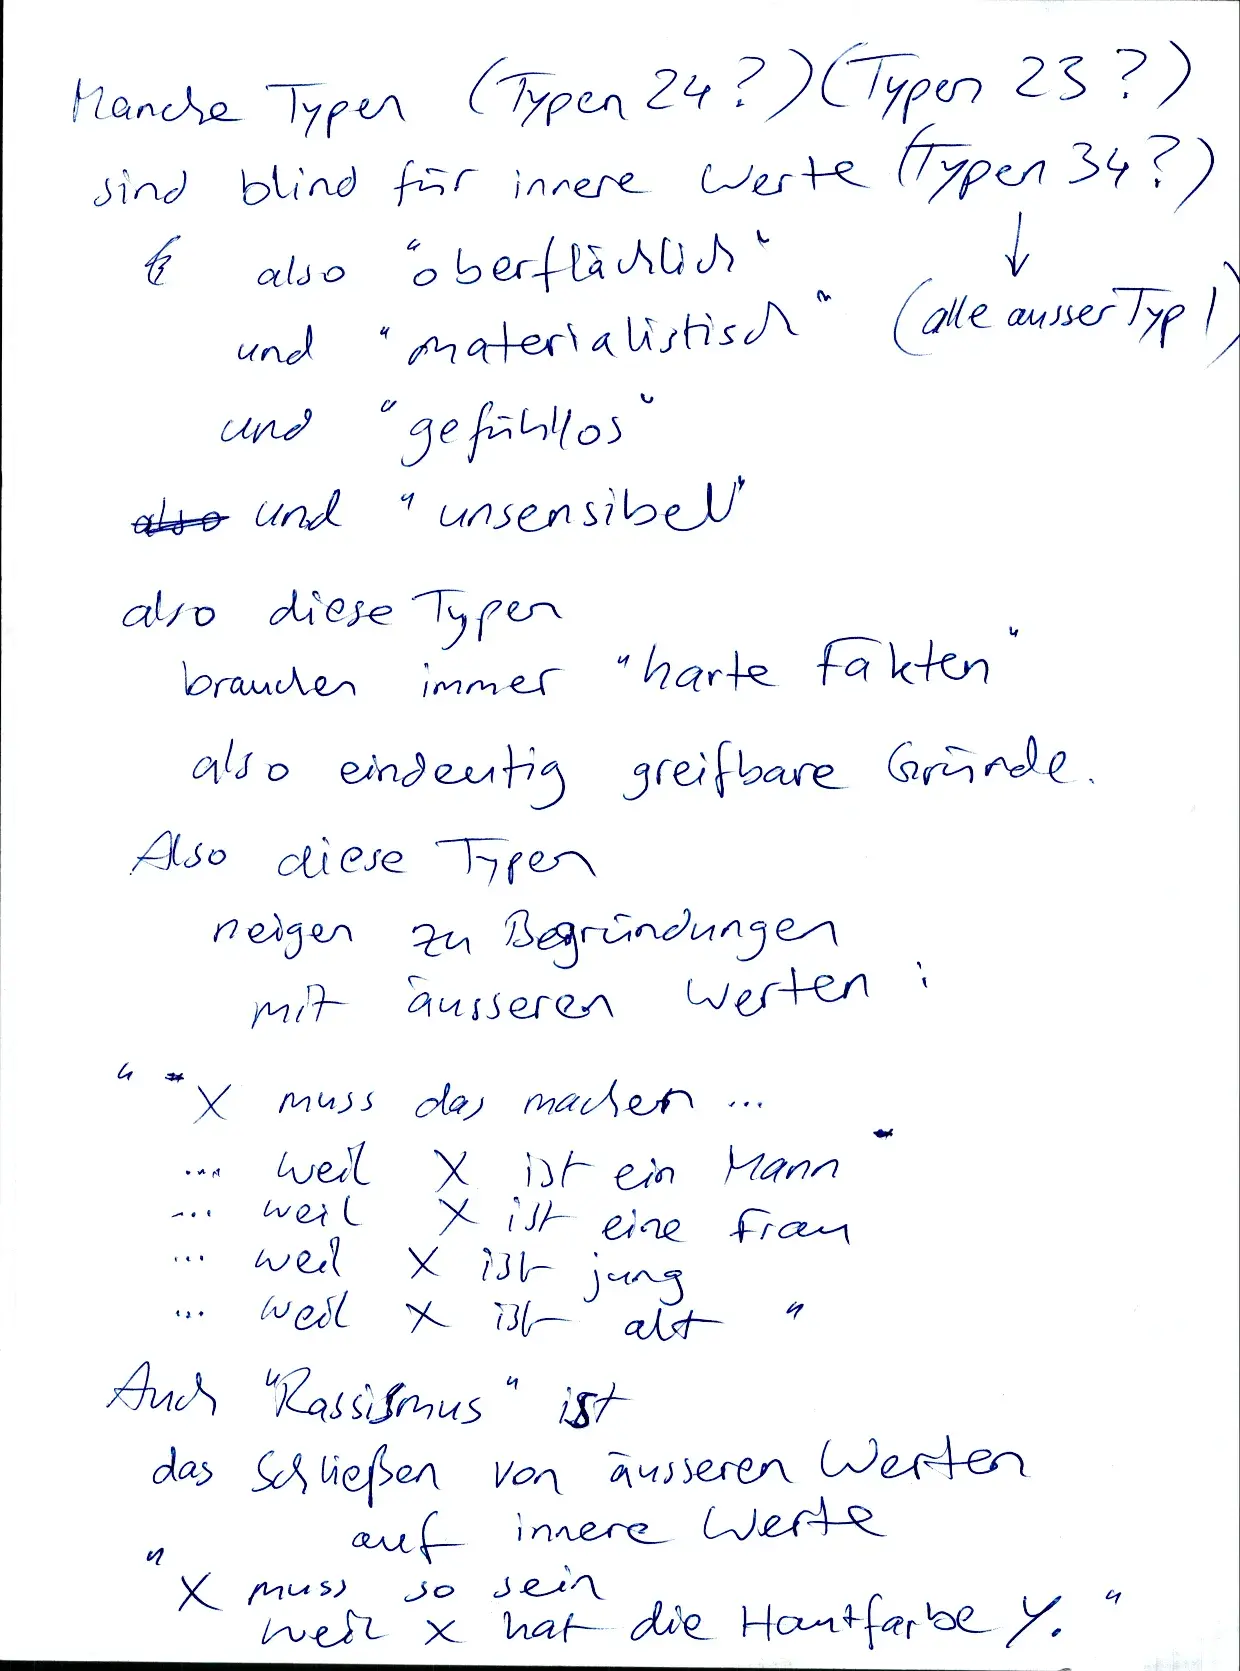 Manche Typen (Typen 24?) (Typen 23?)
sind blind für innere Werte (Typen 34?)
↓
also "oberflächlich"
(alle ausser Typ 1)
und "materialistisch"
und "gefühllos"
also und "unsensibel"
also diese Typen
brauchen immer "harte Fakten"
also eindeutig greifbare Gründe.
Also diese Typen
neigen zu Begründungen
mit äusseren Werten:
" X muss das machen ...
... weil X ist ein Mann
... weil X ist eine Frau
... weil X ist jung
... weil X ist alt "
Auch "Rassismus" ist
das Schließen von äusseren Werten
auf innere Werte
" X muss so sein
weil X hat die Hautfarbe Y. "